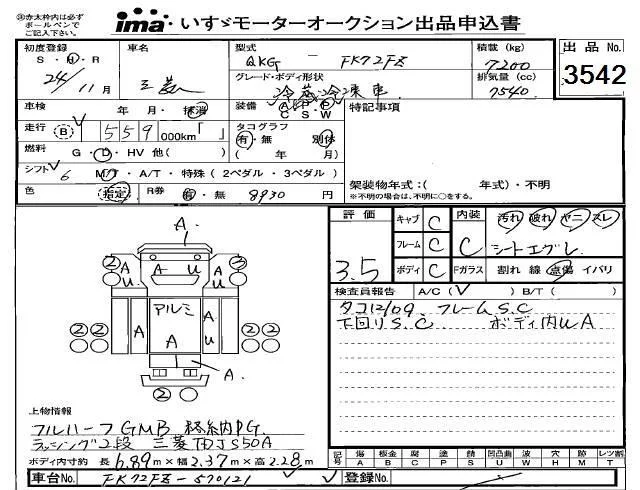 ※赤太枠内は必ず ボールペンで ご記入下さい。
ima いすゞモーターオークション出品申込書
初度登録 車名 型式 積載(kg) 出品No.
S・H・R 24年11月 三菱 QKG - FK72FZ 7200 3542
グレード・ボディ形状 排気量(cc)
冷蔵冷凍車 7540
車検 年 月・抹消 装備 A P P C S W 特記事項
走行 (B) 559,000km「 」 タコグラフ 有・無 別体
燃料 G・D・HV 他( ) ( 年 月)
シフト 6 M/T・A/T・特殊(2ペダル・3ペダル)
架装物年式:( 年式)・不明
色 指定 R券 有・無 8930円 ※不明の場合は、不明に○をする。
評価 キャブ C 内装 汚れ 破れ ヤニ スレ
3.5 フレーム C C シートエグレ
ボディ C Fガラス 割れ 線 点傷 イバリ
検査員報告 A/C( ✓ ) B/T( )
タコ12/09、フレームS.C
下回りS.C ボディ内UA
A
② A U A U ③
② A アルミ A A U ②
A
② ○
上物情報
フルハーフGMB 格納PG
ラッシング2段 三菱TDJS50A
ボディ内寸約 長6.89m×幅2.37m×高2.28m
記号 傷 A 板金 B 腐 C 塗 P 錆 S 凹凸曲 U 波 W 穴 H 跡 M レツ割 T
車台No. FK72FZ-570121 登録No.